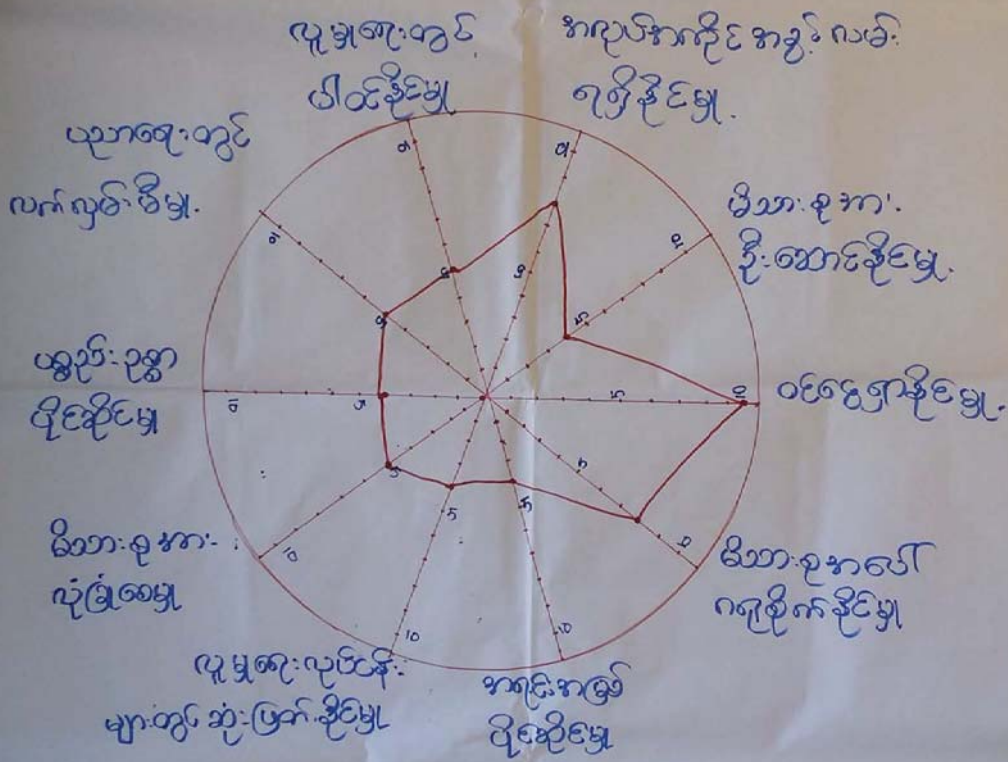 လူမှုရေးတွင်
ပါဝင်နိုင်မှု
အလုပ်အကိုင်အခွင့်လမ်း
ရရှိနိုင်မှု.
မိသားစုအား
ဦးဆောင်နိုင်မှု.
ဝင်ငွေရှာနိုင်မှု.
မိသားစုအပေါ်
ဂရုစိုက်နိုင်မှု
အရင်းအမြစ်
ပိုင်ဆိုင်မှု
လူမှုရေးလုပ်ငန်း
များတွင်ဆုံးဖြတ်နိုင်မှု
မိသားစုအား
လုံခြုံစေမှု
ပစ္စည်းဥစ္စာ
ပိုင်ဆိုင်မှု
ပညာရေးတွင်
လက်လှမ်းမီမှု.
10
5
10
5
10
5
10
5
10
5
10